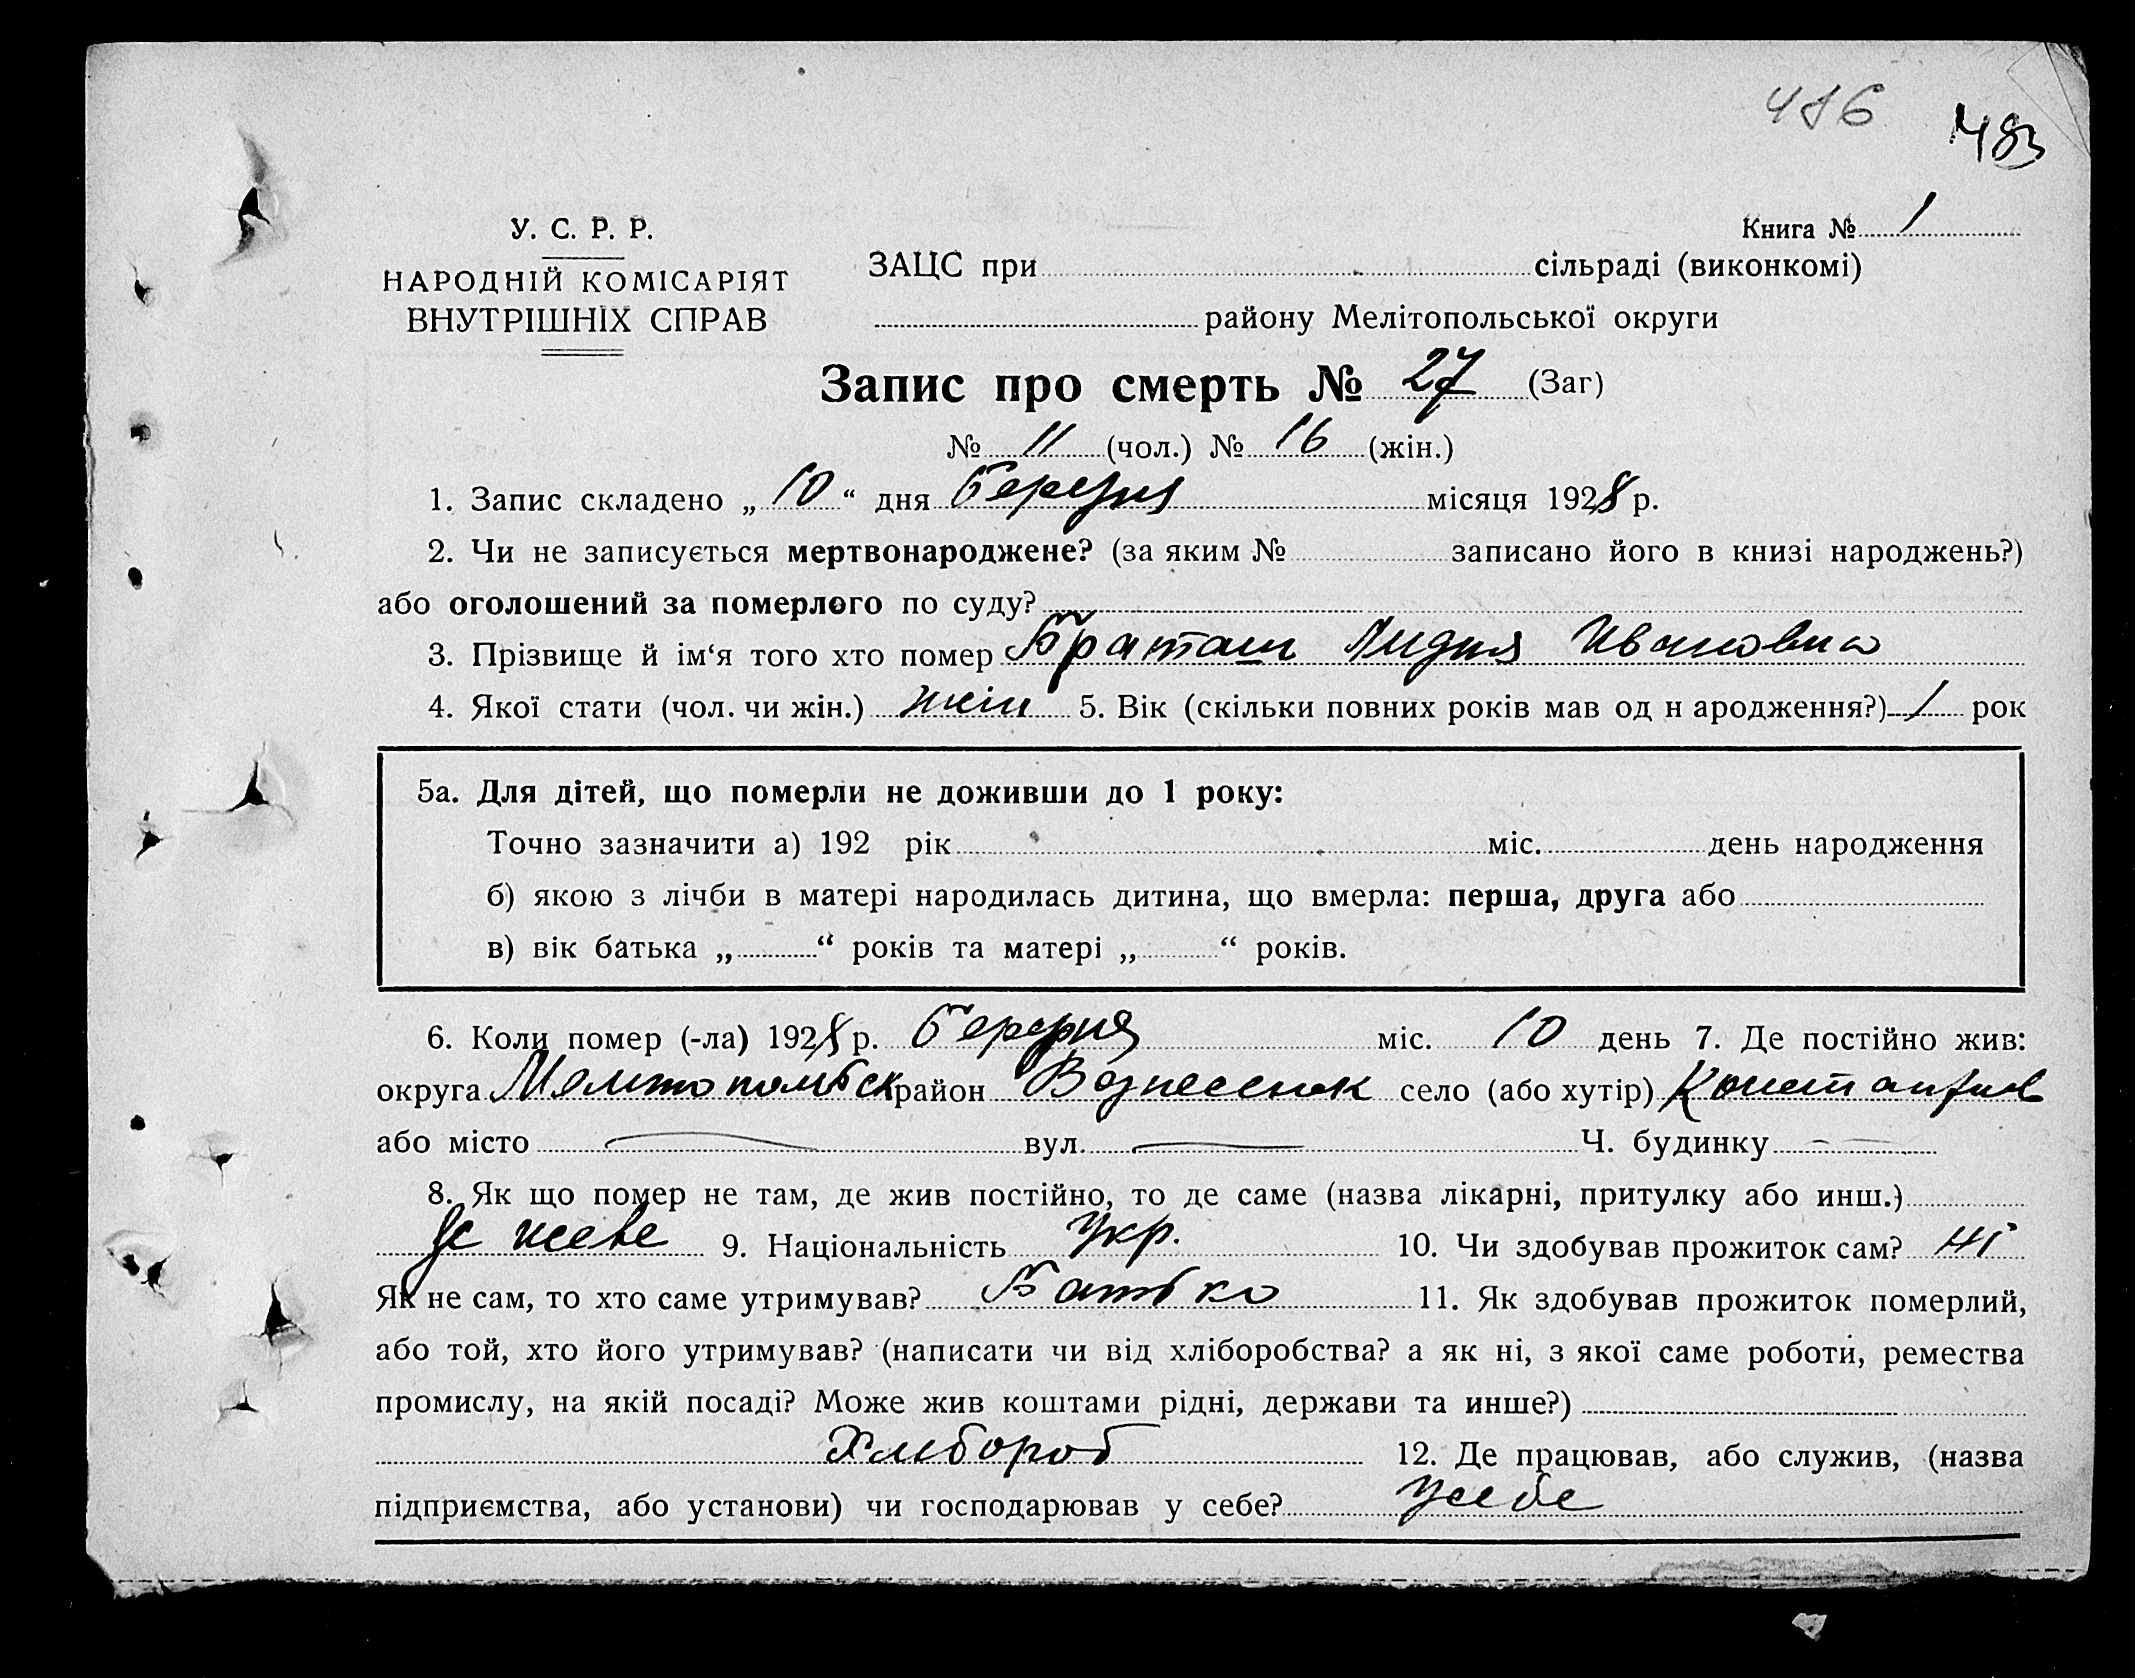 486 483
У. С. Р. Р.
НАРОДНІЙ КОМІСАРІЯТ
ВНУТРІШНІХ СПРАВ
Книга № 1
ЗАЦС при сільраді (виконкомі)
району Мелітопольської округи
Запис про смерть № 27 (Заг)
№ 11 (чол.) № 16 (жін.)
1. Запис складено „ 10 “ дня Березня місяця 1928 р.
2. Чи не записується мертвонароджене? (за яким № записано його в книзі народжень?)
або оголошений за померлого по суду?
3. Прізвище й ім‘я того хто помер Браташ Лидия Ивановна
4. Якої стати (чол. чи жін.) жін 5. Вік (скільки повних років мав од н ародження?) 1 рок
5а. Для дітей, що померли не доживши до 1 року:
Точно зазначити а) 192 рік міс. день народження
б) якою з лічби в матері народилась дитина, що вмерла: перша, друга або
в) вік батька „ “ років та матері „ “ років.
6. Коли помер (-ла) 1928 р. Березня міс. 10 день 7. Де постійно жив:
округа Мелитопольск район Вознесенск село (або хутір) Константин
або місто — вул. — Ч. будинку —
8. Як що помер не там, де жив постійно, то де саме (назва лікарні, притулку або инш.)
де живе 9. Національність Укр. 10. Чи здобував прожиток сам? Ні
Як не сам, то хто саме утримував? Батько 11. Як здобував прожиток померлий,
або той, хто його утримував? (написати чи від хліборобства? а як ні, з якої саме роботи, ремества
промислу, на якій посаді? Може жив коштами рідні, держави та инше?)
Хлибороб 12. Де працював, або служив, (назва
підприємства, або установи) чи господарював у себе? У себе